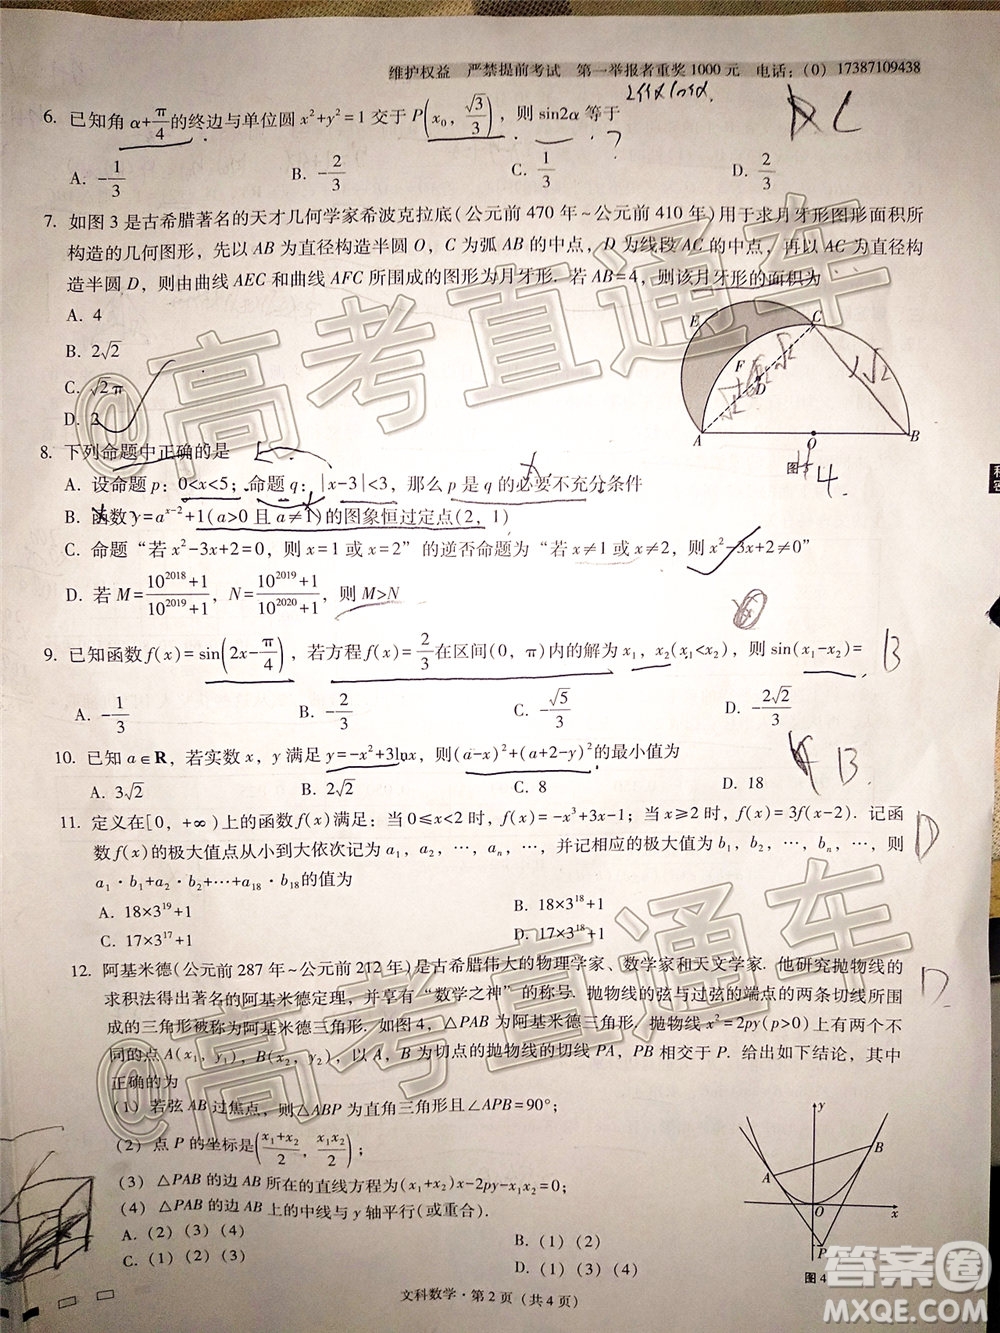 维护权益　严禁提前考试　第一举报者重奖1000元　电话：(0) 17387109438
2sinα cosα
6. 已知角 α+π/4 的终边与单位圆 x²+y²=1 交于 P(x₀, √3/3)，则 sin2α 等于
C
A. -1/3　B. -2/3　C. 1/3　D. 2/3
7. 如图 3 是古希腊著名的天才几何学家希波克拉底(公元前 470 年~公元前 410 年)用于求月牙形图形面积所
构造的几何图形，先以 AB 为直径构造半圆 O，C 为弧 AB 的中点，D 为线段 AC 的中点，再以 AC 为直径构
造半圆 D，则由曲线 AEC 和曲线 AFC 所围成的图形为月牙形. 若 AB=4，则该月牙形的面积为
A. 4
B. 2√2
C. √2π
D. 2
E C F D A O B
图
4
8. 下列命题中正确的是
A. 设命题 p：0<x<5；命题 q：|x-3|<3，那么 p 是 q 的必要不充分条件
B. 函数 y=aˣ⁻²+1(a>0 且 a≠1)的图象恒过定点(2，1)
C. 命题“若 x²-3x+2=0，则 x=1 或 x=2”的逆否命题为“若 x≠1 或 x≠2，则 x²-3x+2≠0”
D. 若 M=(10²⁰¹⁸+1)/(10²⁰¹⁹+1)，N=(10²⁰¹⁹+1)/(10²⁰²⁰+1)，则 M>N
9. 已知函数 f(x)=sin(2x-π/4)，若方程 f(x)=2/3 在区间(0，π)内的解为 x₁，x₂(x₁<x₂)，则 sin(x₁-x₂)=
B
A. -1/3　B. -2/3　C. -√5/3　D. -2√2/3
10. 已知 a∈R，若实数 x，y 满足 y=-x²+3lnx，则(a-x)²+(a+2-y)²的最小值为
B
A. 3√2　B. 2√2　C. 8　D. 18
11. 定义在[0，+∞)上的函数 f(x)满足：当 0≤x<2 时，f(x)=-x³+3x-1；当 x≥2 时，f(x)=3f(x-2). 记函
D
数 f(x)的极大值点从小到大依次记为 a₁，a₂，…，aₙ，…，并记相应的极大值为 b₁，b₂，…，bₙ，…，则
a₁·b₁+a₂·b₂+…+a₁₈·b₁₈的值为
A. 18×3¹⁹+1　B. 18×3¹⁸+1
C. 17×3¹⁷+1　D. 17×3¹⁸+1
12. 阿基米德(公元前 287 年~公元前 212 年)是古希腊伟大的物理学家、数学家和天文学家. 他研究抛物线的
D
求积法得出著名的阿基米德定理，并享有“数学之神”的称号. 抛物线的弦与过弦的端点的两条切线所围
成的三角形被称为阿基米德三角形. 如图 4，△PAB 为阿基米德三角形. 抛物线 x²=2py(p>0)上有两个不
同的点 A(x₁，y₁)，B(x₂，y₂)，以 A，B 为切点的抛物线的切线 PA，PB 相交于 P. 给出如下结论，其中
正确的为
(1) 若弦 AB 过焦点，则△ABP 为直角三角形且∠APB=90°；
(2) 点 P 的坐标是((x₁+x₂)/2，x₁x₂/2)；
(3) △PAB 的边 AB 所在的直线方程为(x₁+x₂)x-2py-x₁x₂=0；
(4) △PAB 的边 AB 上的中线与 y 轴平行(或重合).
A. (2) (3) (4)　B. (1) (2)
C. (1) (2) (3)　D. (1) (3) (4)
y B A O x P
图 4
文科数学·第 2 页（共 4 页）
@高考直通车
@高考直通车
答案圈
MXQE.COM